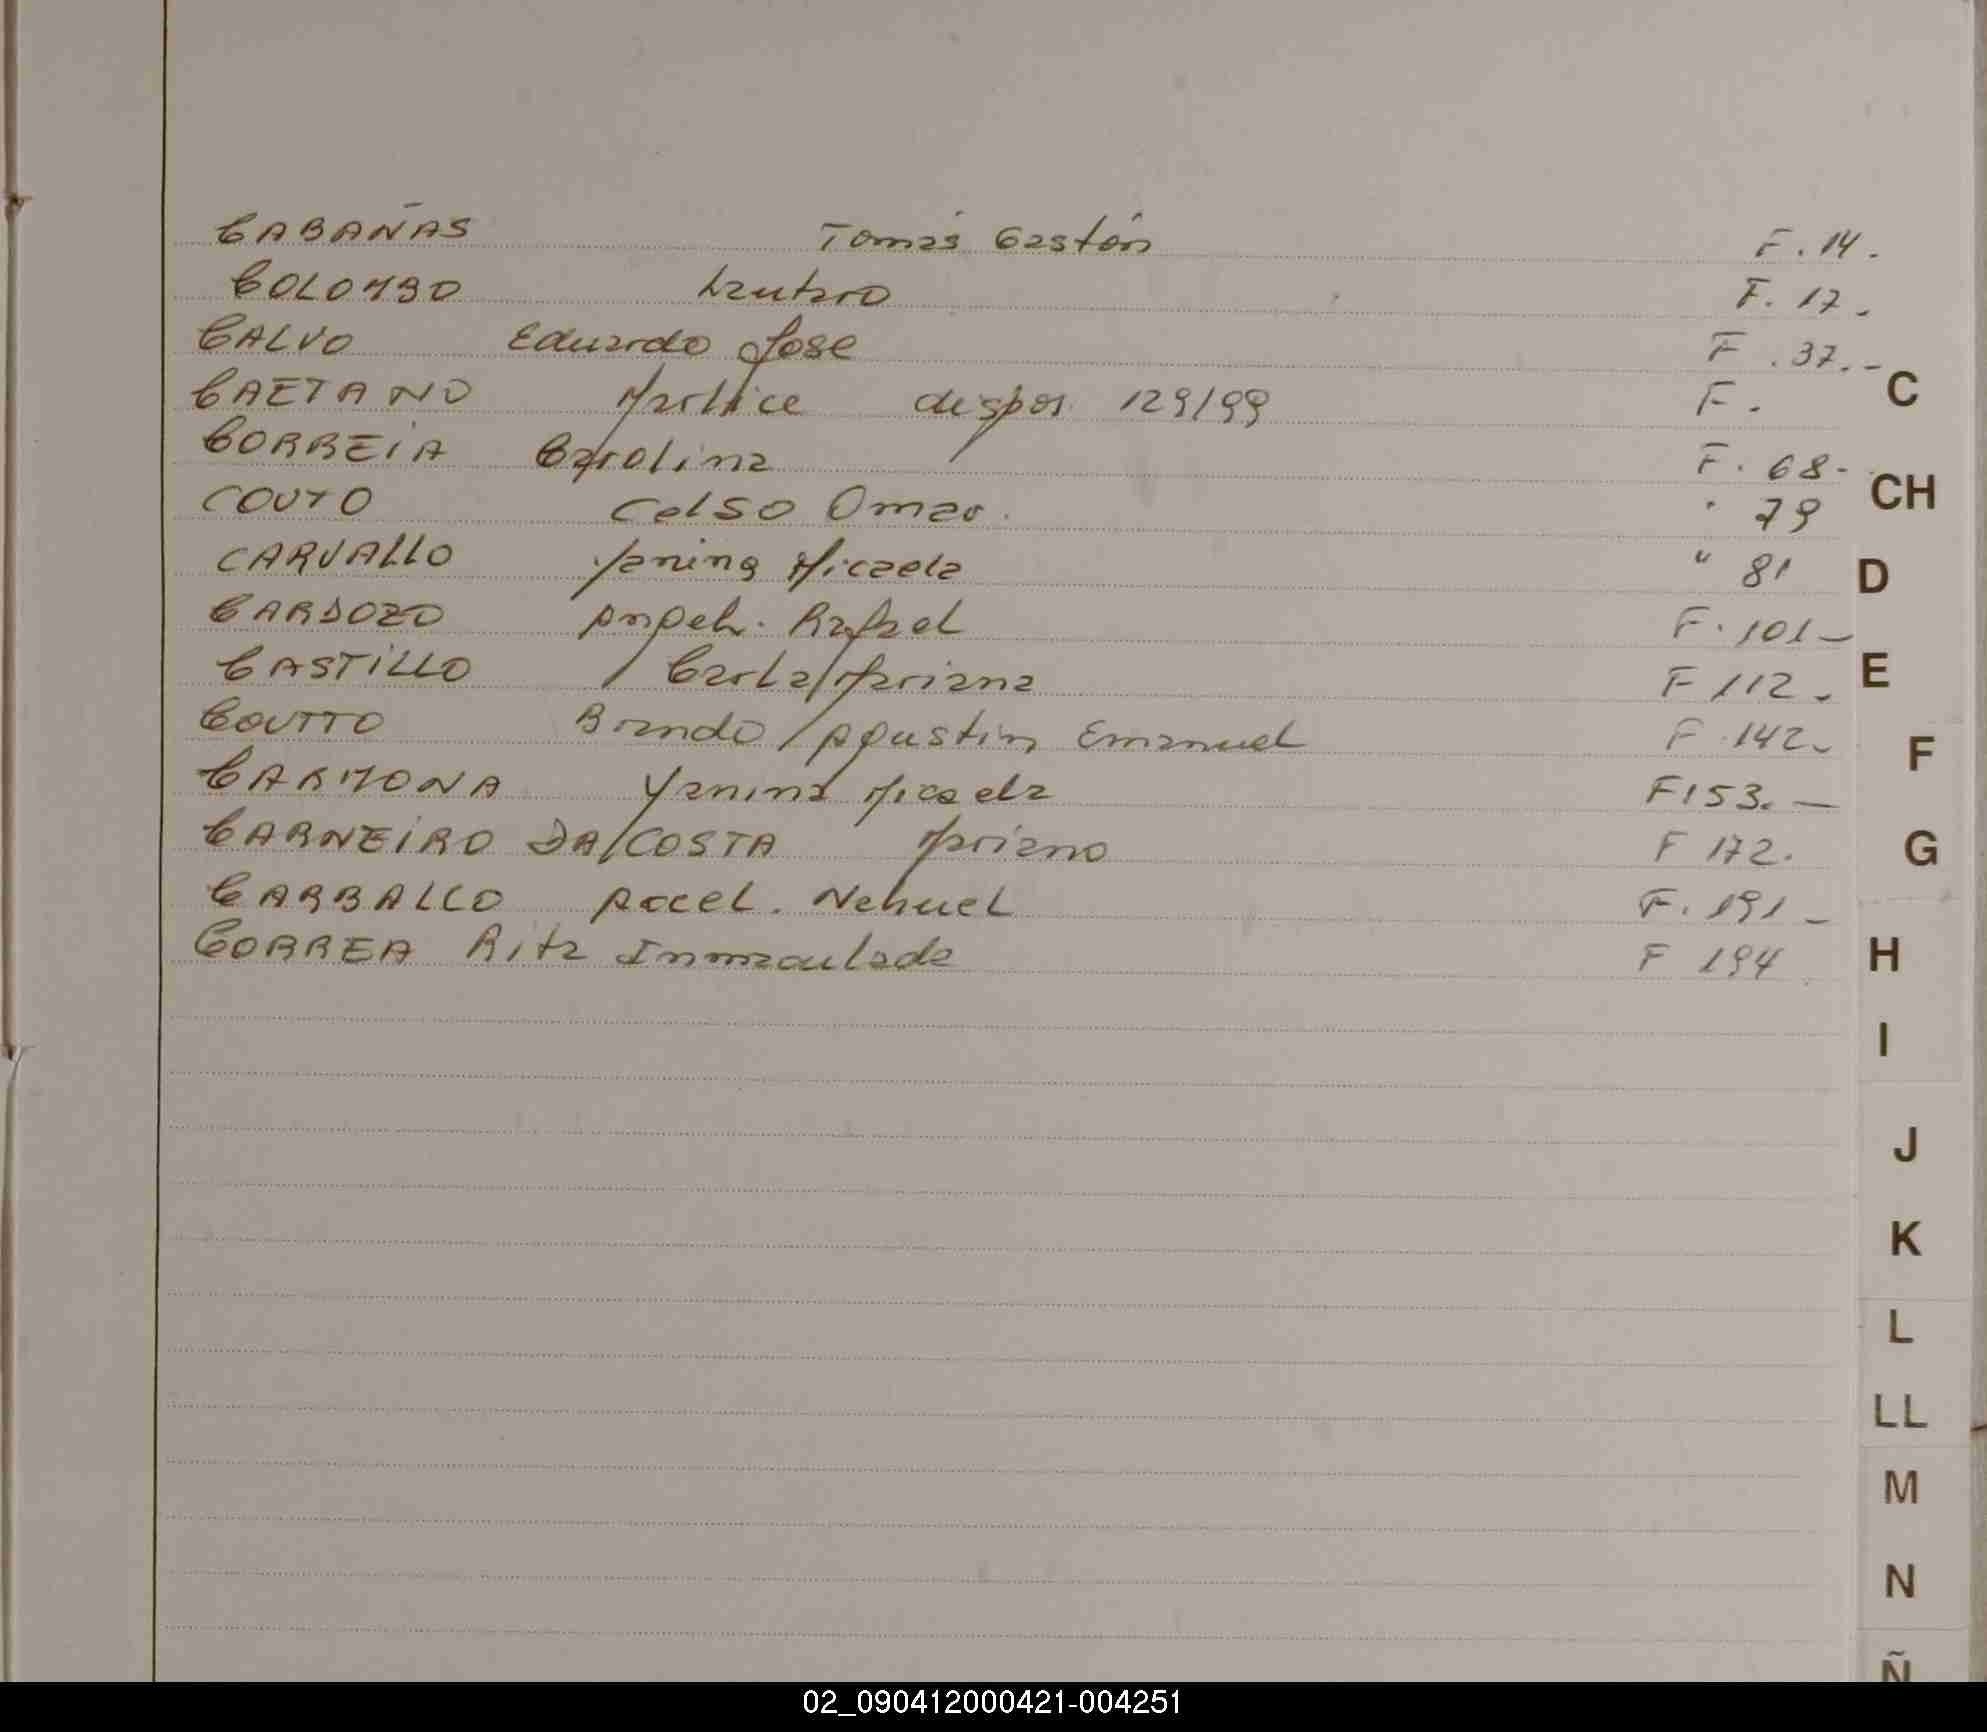 CABAÑAS Tomás Gastón F. 14.
COLOMBO Lautaro F. 17.
CALVO Eduardo Jose F. 37.-
CAETANO dispos. 129/99 F.
CORREIA Carolina F. 68-
COUTO Celso Omar. " 79
CARVALLO Yanina Micaela " 81
CARDOZO Angel. Rafael F. 101-
CASTILLO Carla Mariana F 112.
COUTTO Brando Agustin Emanuel F 142-
CARMONA Yanina Micaela F153.-
CARNEIRO DA COSTA Mariano F 172.
CARBALLO Axcel. Nehuel F. 191-
CORREA Rita Inmaculada F 194
C
CH
D
E
F
G
H
I
J
K
L
LL
M
N
Ñ
02_090412000421-004251